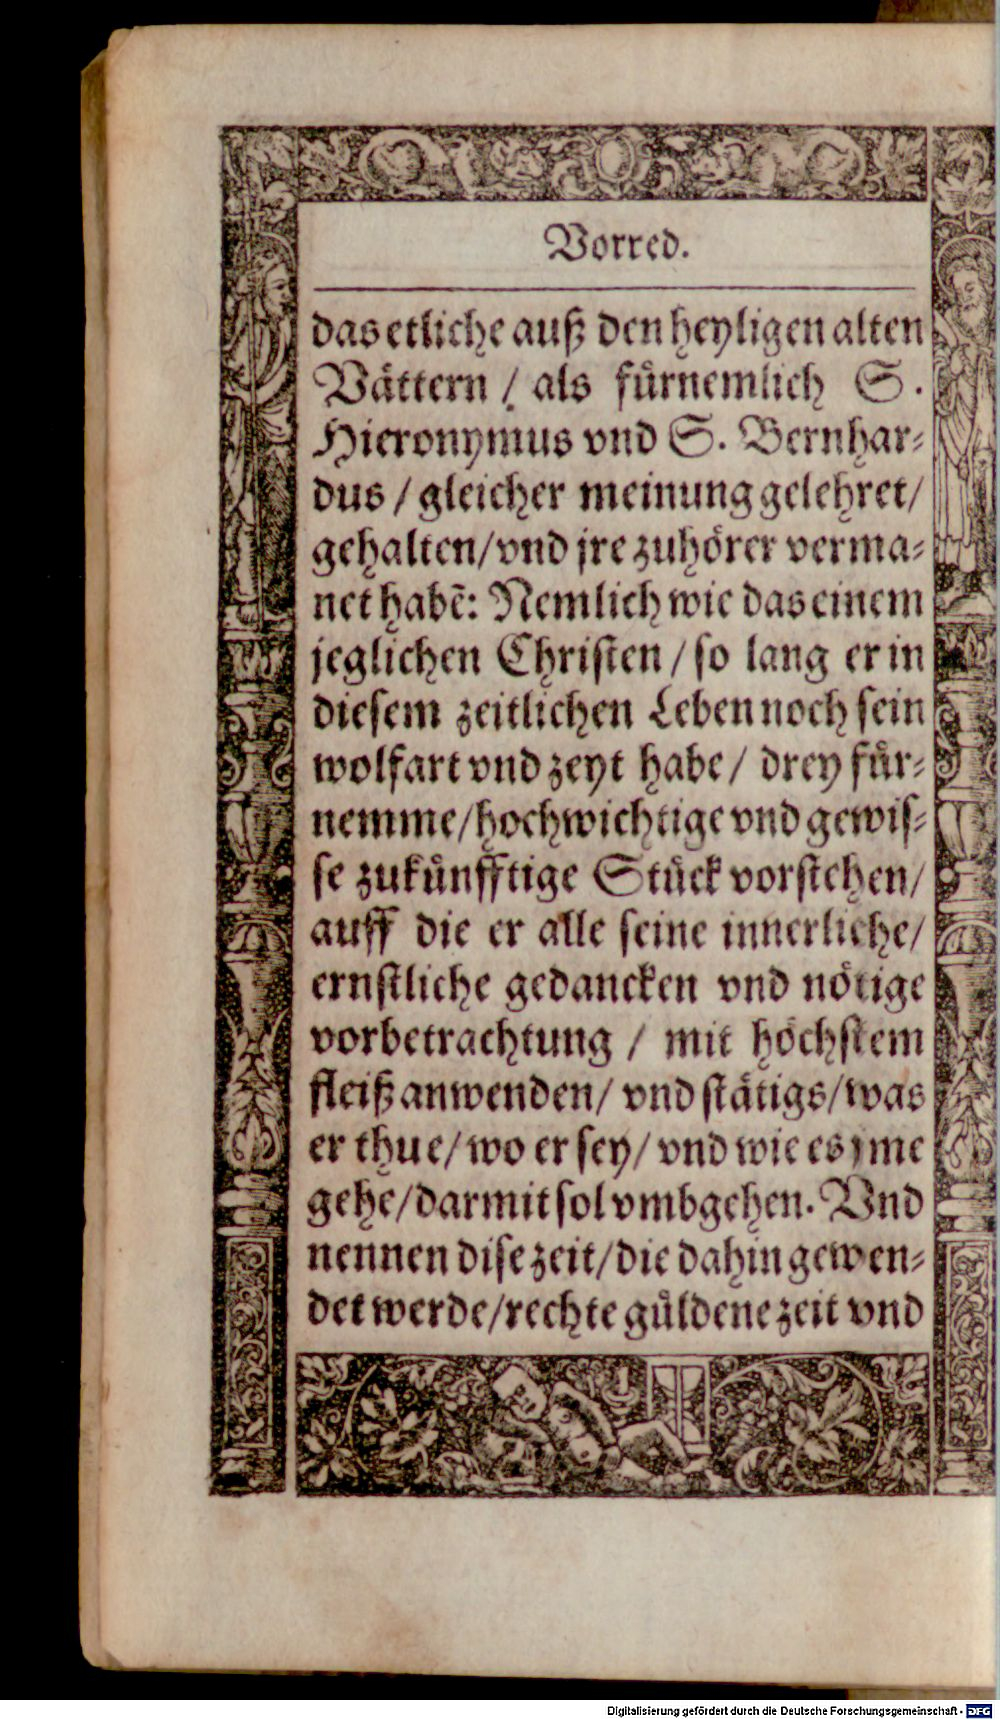 Vorred.
das etliche auß den heyligen alten
Vättern / als fürnemlich S.
Hieronymus vnd S. Bernhar⸗
dus / gleicher meinung gelehret /
gehalten / vnd jre zuhörer verma⸗
net habē: Nemlich wie das einem
jeglichen Christen / so lang er in
diesem zeitlichen Leben noch sein
wolfart vnd zeyt habe / drey für⸗
nemme / hochwichtige vnd gewis⸗
se zukünfftige Stück vorstehen /
auff die er alle seine innerliche /
ernstliche gedancken vnd nötige
vorbetrachtung / mit höchstem
fleiß anwenden / vnd stätigs / was
er thue / wo er sey / vnd wie es jme
gehe / darmit sol vmbgehen. Vnd
nennen dise zeit / die dahin gewen⸗
det werde / rechte güldene zeit vnd
Digitalisierung gefördert durch die Deutsche Forschungsgemeinschaft - DFG